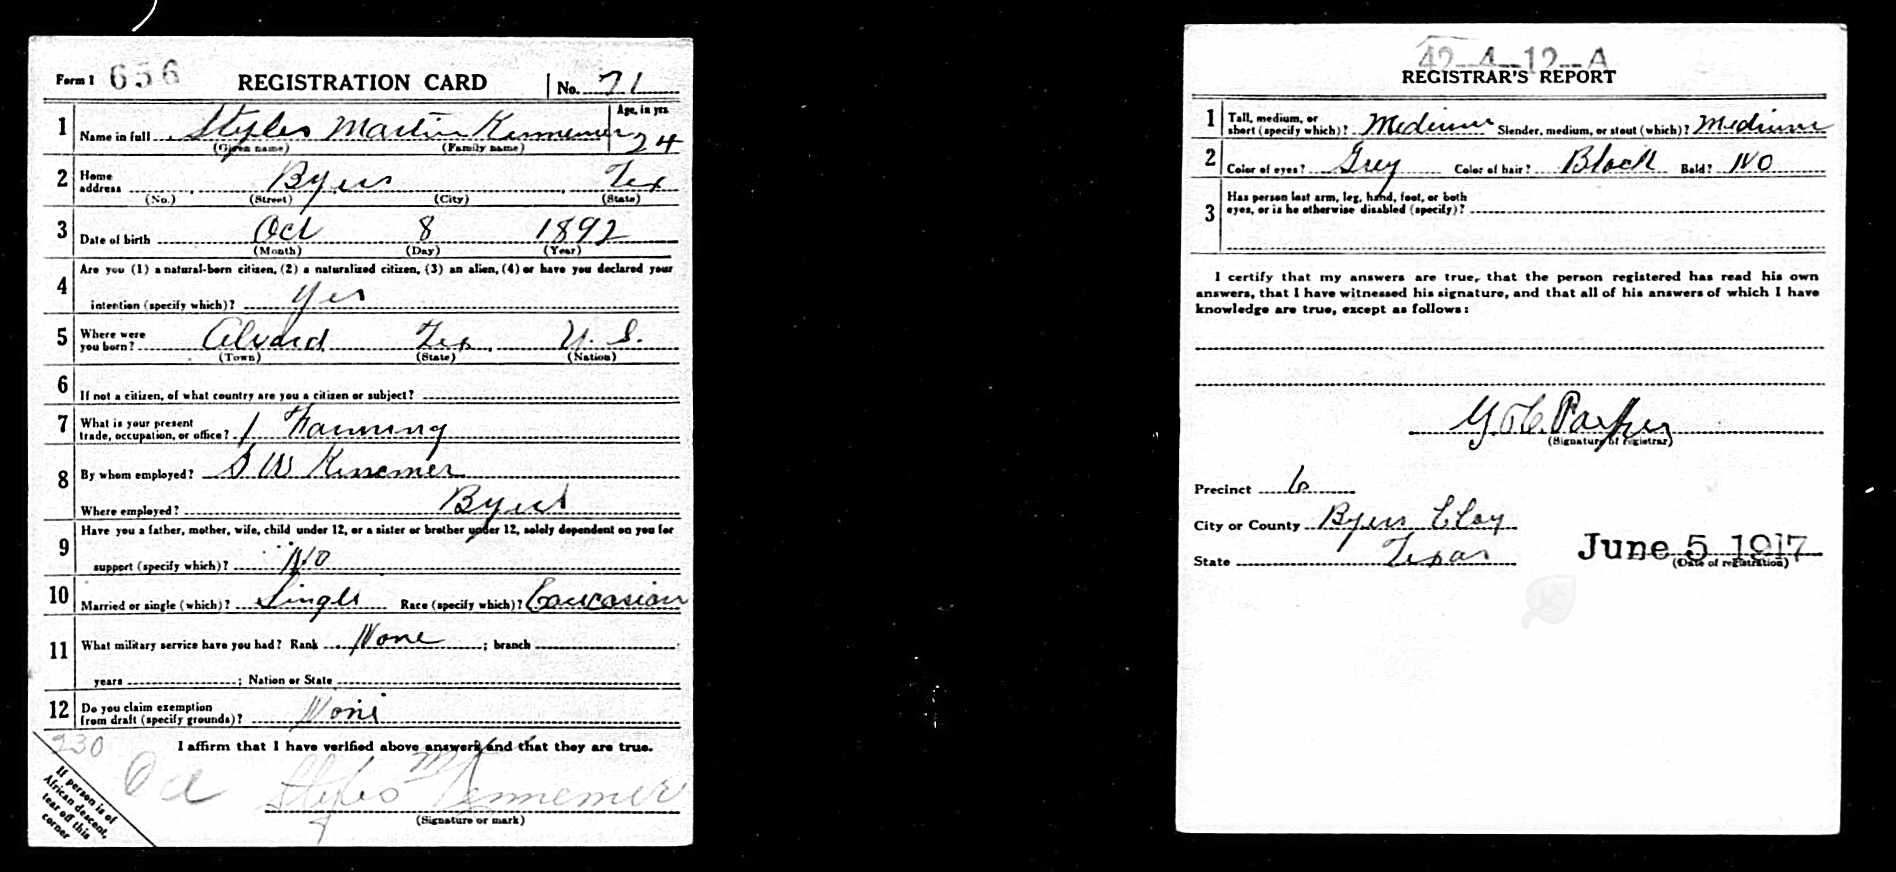 Form 1 656 REGISTRATION CARD No. 71
1 Name in full Styles Martin Kennemer Age, in yrs. 24
(Given name) (Family name)
2 Home address Byers Tex
(No.) (Street) (City) (State)
3 Date of birth Oct 8 1892
(Month) (Day) (Year)
4 Are you (1) a natural-born citizen, (2) a naturalized citizen, (3) an alien, (4) or have you declared your
intention (specify which)? Yes
5 Where were you born? Alvord Tex. U. S.
(Town) (State) (Nation)
6 If not a citizen, of what country are you a citizen or subject?
7 What is your present trade, occupation, or office? 1 Farming
8 By whom employed? W Kennemer
Where employed? Byers
9 Have you a father, mother, wife, child under 12, or a sister or brother under 12, solely dependent on you for
support (specify which)? No
10 Married or single (which)? Single Race (specify which)? Caucasian
11 What military service have you had? Rank None ; branch
years ; Nation or State
12 Do you claim exemption from draft (specify grounds)? None
I affirm that I have verified above answers and that they are true.
230
Styles M Kennemer
(Signature or mark)
If person is of
African descent,
tear off this
corner
42-4-12-A
REGISTRAR'S REPORT
1 Tall, medium, or short (specify which)? Medium Slender, medium, or stout (which)? Medium
2 Color of eyes? Grey Color of hair? Black Bald? No
3 Has person lost arm, leg, hand, foot, or both
eyes, or is he otherwise disabled (specify)?
I certify that my answers are true, that the person registered has read his own
answers, that I have witnessed his signature, and that all of his answers of which I have
knowledge are true, except as follows:
Parker
(Signature of registrar)
Precinct 6
City or County Byers Clay
State Texas
June 5 1917
(Date of registration)